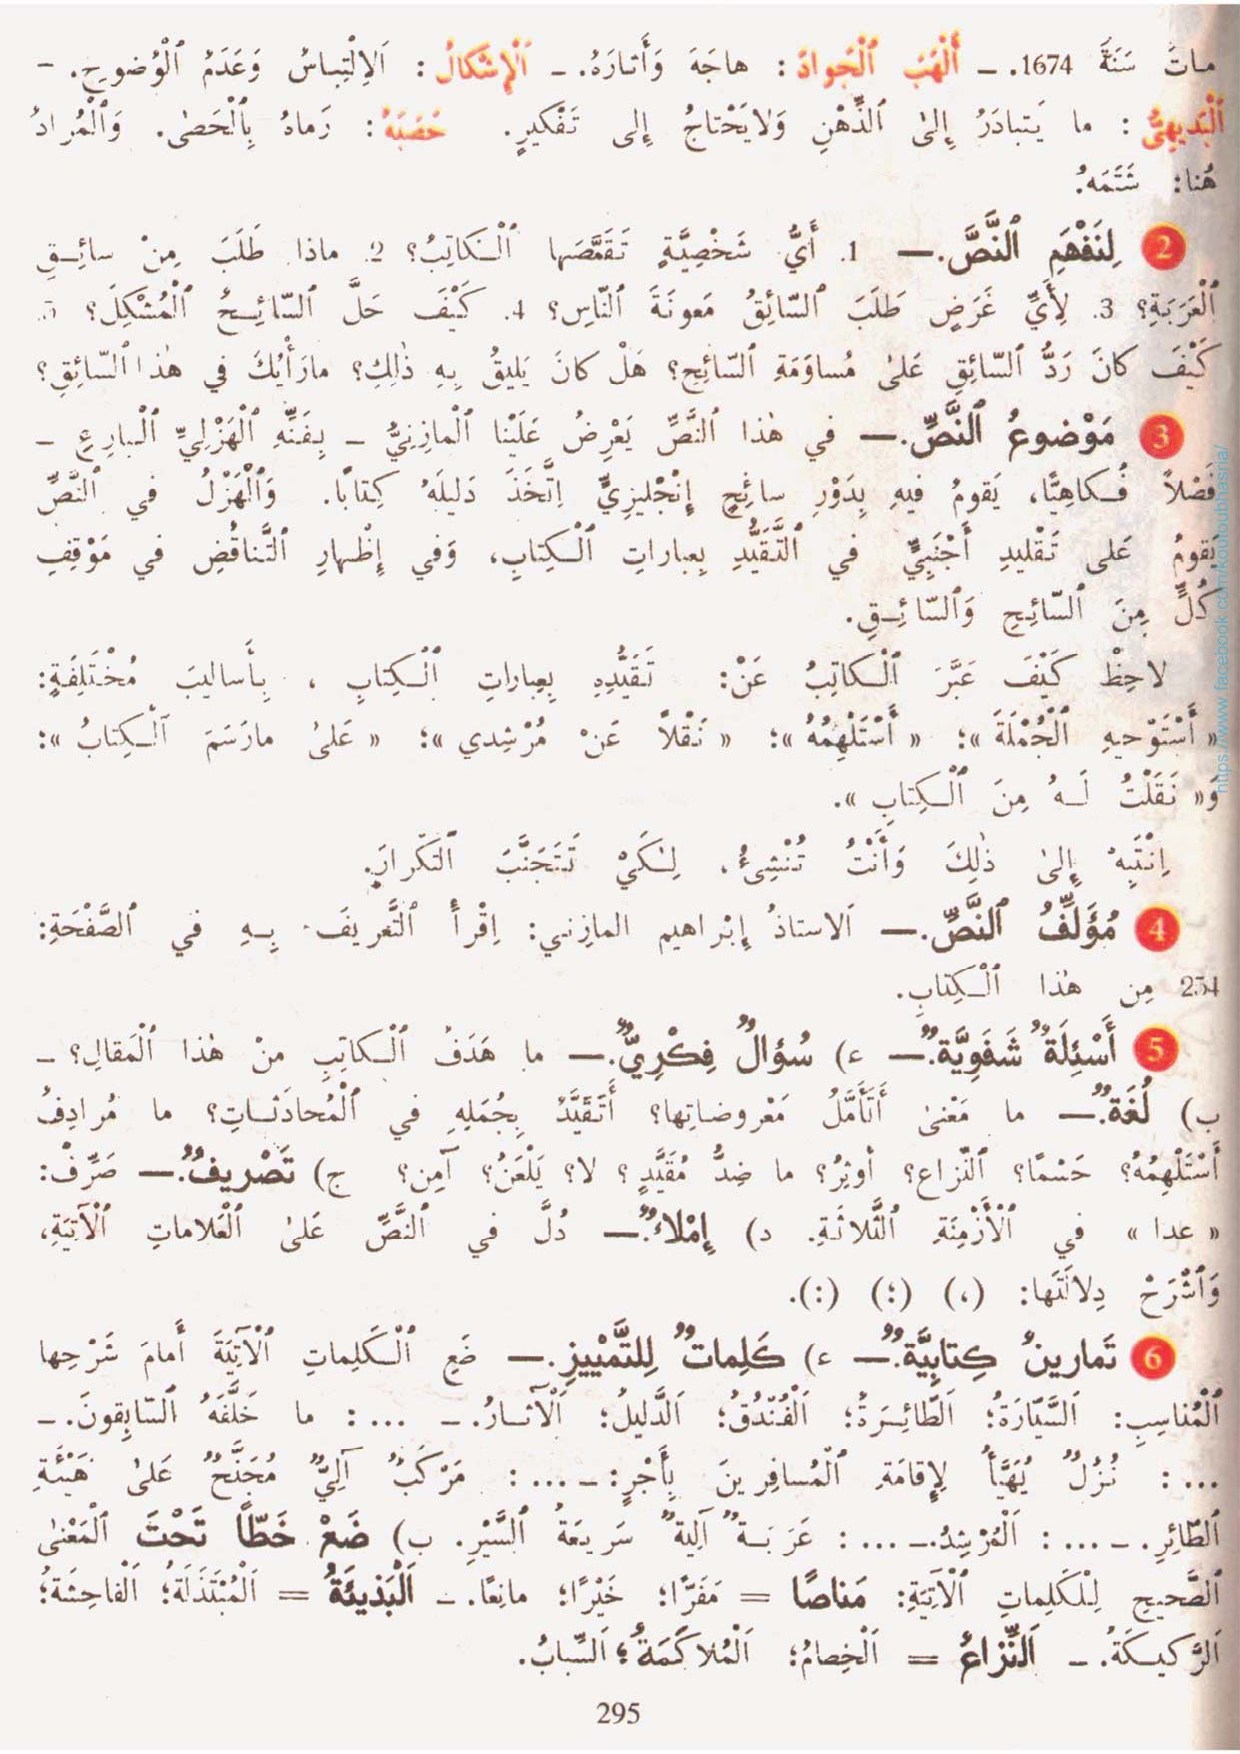 ماتَ سَنَةَ 1674. ـ أَلْهَبَ ٱلْجَوادَ : هاجَهُ وَأَثارَهُ. ـ اَلْإِشْكالُ : اَلِٱلْتِباسُ وَعَدَمُ ٱلْوُضوحِ. ـ
اَلْبَديهِيُّ : ما يَتَبادَرُ إِلىٰ ٱلذِّهْنِ وَلايَحْتاجُ إِلى تَفْكيرٍ. حَصَبَهُ : رَماهُ بِٱلْحَصٰى. وَٱلْمُرادُ
هُنا: شَتَمَهُ.
2 لِنَفْهَمِ ٱلنَّصَّ.ــ 1. أَيُّ شَخْصِيَّةٍ تَقَمَّصَها ٱلْكاتِبُ؟ 2. ماذا طَلَبَ مِنْ سائِقِ
ٱلْعَرَبَةِ؟ 3. لِأَيِّ غَرَضٍ طَلَبَ ٱلسّائِقُ مَعونَةَ ٱلنّاسِ؟ 4. كَيْفَ حَلَّ ٱلسّائِحُ ٱلْمُشْكِلَ؟ 5.
كَيْفَ كانَ رَدُّ ٱلسّائِقِ عَلىٰ مُساوَمَةِ ٱلسّائِحِ؟ هَلْ كانَ يَليقُ بِهِ ذٰلِكَ؟ مارَأْيُكَ في هٰذا ٱلسّائِقِ؟
3 مَوْضوعُ ٱلنَّصِّ.ــ في هٰذا ٱلنَّصِّ يَعْرِضُ عَلَيْنا ٱلْمازِنِيُّ ـ بِفَنِّهِ ٱلْهَزْلِيِّ ٱلْبارِعِ ـ
فَصْلاً فُكاهِيًّا، يَقومُ فيهِ بِدَوْرِ سائِحٍ إِنْجْليزِيٍّ اِتَّخَذَ دَليلَهُ كِتابًا. وَٱلْهَزْلُ في ٱلنَّصِّ
يَقومُ عَلى تَقْليدِ أَجْنَبِيٍّ في ٱلتَّقَيُّدِ بِعِباراتِ ٱلْكِتابِ، وَفي إِظْهارِ ٱلتَّناقُضِ في مَوْقِفِ
كُلٍّ مِنَ ٱلسّائِحِ وَٱلسّائِقِ.
لاحِظْ كَيْفَ عَبَّرَ ٱلْكاتِبُ عَنْ: تَقَيُّدِهِ بِعِباراتِ ٱلْكِتابِ ، بِأَساليبَ مُخْتَلِفَةٍ:
« أَسْتَوْحيهِ ٱلْجُمْلَةَ »؛ « أَسْتَلْهِمُهُ »؛ « نَقْلاً عَنْ مُرْشِدي »؛ « عَلىٰ مارَسَمَ ٱلْكِتابُ »؛
وَ« نَقَلْتُ لَهُ مِنَ ٱلْكِتابِ ».
اِنْتَبِهْ إِلىٰ ذٰلِكَ وَأَنْتَ تُنْشِئُ، لِكَيْ تَتَجَنَّبَ ٱلتَّكْرارَ.
4 مُؤَلِّفُ ٱلنَّصِّ.ــ اَلاستاذُ إِبْراهيم المازِني: اِقْرأْ ٱلتَّعْريفَ بِهِ في ٱلصَّفْحَةِ:
254 مِن هٰذا ٱلْكِتابِ.
5 أَسْئِلَةٌ شَفَوِيَّةٌ.ــ ء) سُؤالٌ فِكْرِيٌّ.ــ ما هَدَفُ ٱلْكاتِبِ مِنْ هٰذا ٱلْمَقالِ؟ ـ
ب) لُغَةٌ.ــ ما مَعْنىٰ أَتَأَمَّلُ مَعْروضاتِها؟ أَتَقَيَّدُ بِجُمَلِهِ في ٱلْمُحادَثاتِ؟ ما مُرادِفُ
أَسْتَلْهِمُهُ؟ حَسْمًا؟ ٱلنِّزاع؟ أوثِرُ؟ ما ضِدُّ مُقَيَّدٍ؟ لا؟ يَلْعَنُ؟ آمِن؟ ج) تَصْريفٌ.ــ صَرِّفْ:
« عدا » في ٱلْأَزْمِنَةِ ٱلثَّلاثَةِ. د) إِمْلاءٌ.ــ دُلَّ في ٱلنَّصِّ عَلىٰ ٱلْعَلاماتِ ٱلْآتِيَةِ،
وَٱشْرَحْ دِلالَتَها: (،) (؛) (:).
6 تَمارينُ كِتابِيَّةٌ.ــ ء) كَلِماتٌ لِلتَّمْييزِ.ــ ضَعِ ٱلْكَلِماتِ ٱلْآتِيَةَ أَمامَ شَرْحِها
ٱلْمُناسِبِ: اَلسَّيّارَةُ؛ اَلطّائِرَةُ؛ اَلْفُنْدُقُ؛ اَلدَّليلُ؛ اَلْآثارُ. ـ ... : ما خَلَّفَهُ ٱلسّابِقونَ. ـ
... : نُزُلٌ يُهَيَّأُ لِإِقامَةِ ٱلْمُسافِرينَ بِأَجْرٍ: ـ ... : مَرْكَبٌ آلِيٌّ مُجَنَّحٌ عَلىٰ هَيْئَةِ
ٱلطّائِرِ. ـ ... : اَلْمُرْشِدُ. ـ ... : عَرَبَةٌ آلِيةٌ سَريعَةُ ٱلسَّيْرِ. ب) ضَعْ خَطّاً تَحْتَ ٱلْمَعْنىٰ
ٱلصَّحيحِ لِلْكَلِماتِ ٱلْآتِيَةِ: مَناصًا = مَفَرًّا؛ خَيْرًا؛ مانِعًا. ـ اَلْبَذيئَةُ = اَلْمُبْتَذَلَةُ؛ اَلْفاحِشَةُ؛
اَلرَّكيكَةُ. ـ اَلنِّزاعُ = اَلْخِصامُ؛ اَلْمُلاكَمَةُ؛ اَلسِّبابُ.
295
https://www.facebook.com/koutoubhasria/